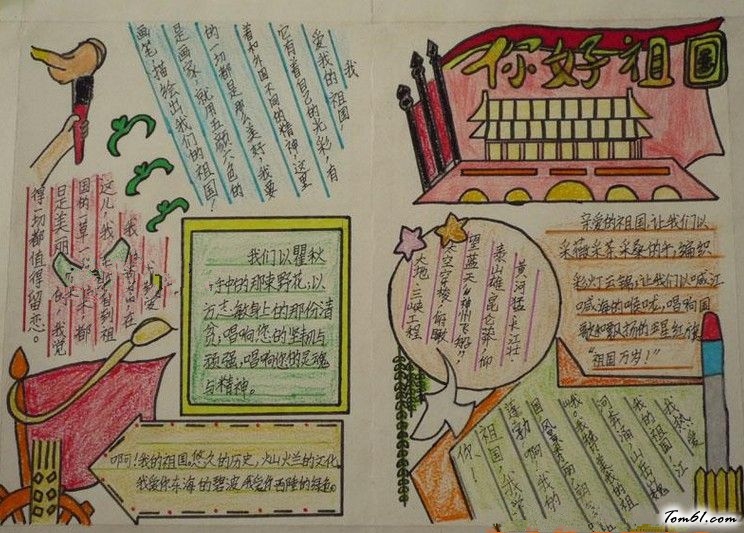 你好祖国
我
爱我的祖国,
它有着自己的光彩,有
着和外国不同的精神!这里
的一切都是那么美好,我要
是画家,就用五颜六色的
画笔描绘出我们的祖国!
这儿,我看到祖
国的一草一木都
日是美丽色,我觉
得一切都值得留恋。
我们以瞿秋
手中的那束野花,以
方志敏身上的那份清
贫;唱响您的坚韧与
顽强,唱响你的灵魂
与精神。
啊!我的祖国。悠久的历史,火山火兰的文化。
我爱你东海的碧波,我爱你西陲的绿色。
黄河猛长江壮
泰山雄昆仑莽仰
望蓝天"神州飞船"
太空穿梭俯瞰
大地三峡工程
亲爱的祖国,让我们以
采薇采茶采桑的手,编织
彩灯云锦;让我们以喊江
喊海的喉咙,唱响国
歌和飘扬的五星红旗
"祖国万岁!"
我热爱
我的祖国,江
河奔涌,山岳巍
我赞美我的祖
国,风景秀丽,朝气
蓬勃啊!我的
祖国,我爱
你
Tom61.com